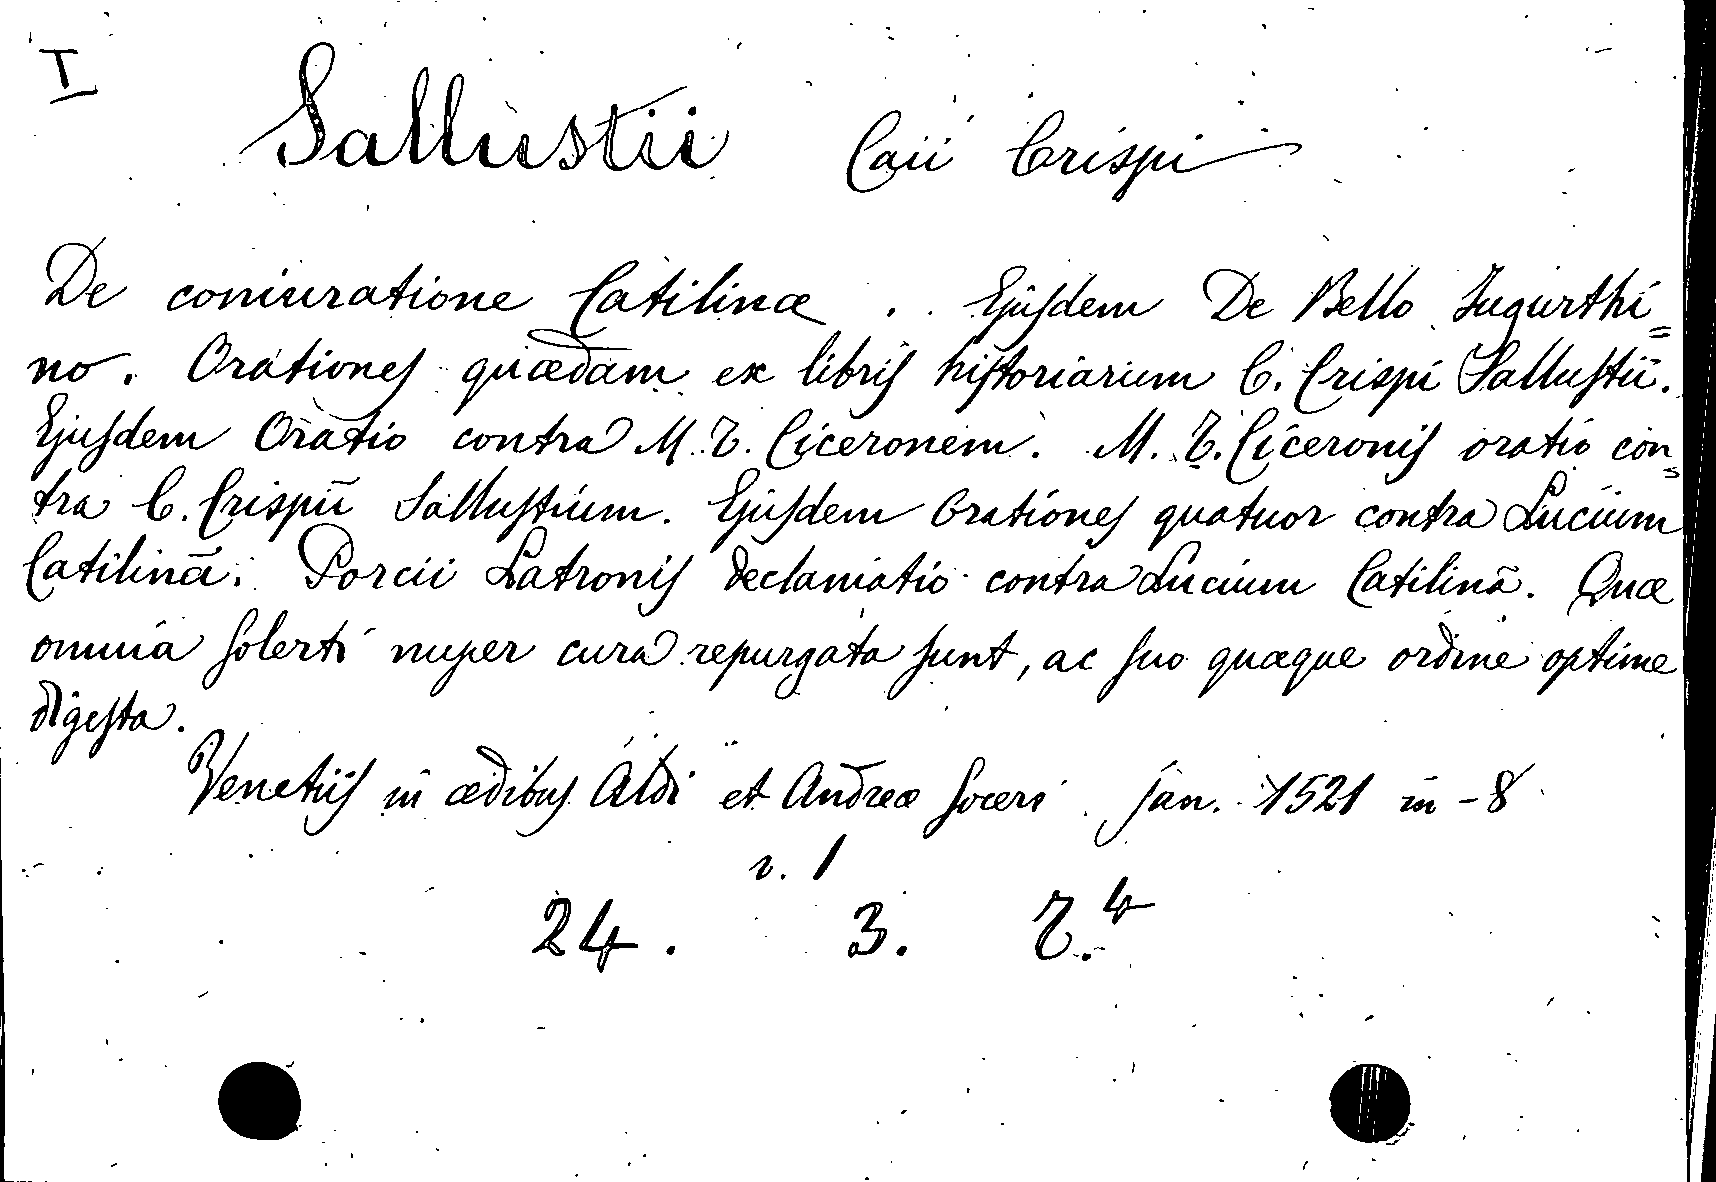 I
Sallustii Caii Crispi
De coniuratione Catilinæ. Ejusdem De Bello Jugurthi=
no. Orationes quædam ex libris historiarum C. Crispi Sallustii.
Ejusdem Oratio contra M. T. Ciceronem. M. T. Ciceronis oratio con=
tra C. Crispū Sallustium. Ejusdem Orationes quatuor contra Lucium
Catilinā. Porcii Latronis declamatio contra Lucium Catilinā. Quæ
omnia solerti nuper cura repurgata sunt, ac suo quæque ordine optime
digesta.
Venetiis in ædibus Aldi et Andreæ soceri. Jan. 1521 in-8
v. 1
24. 3. T.4